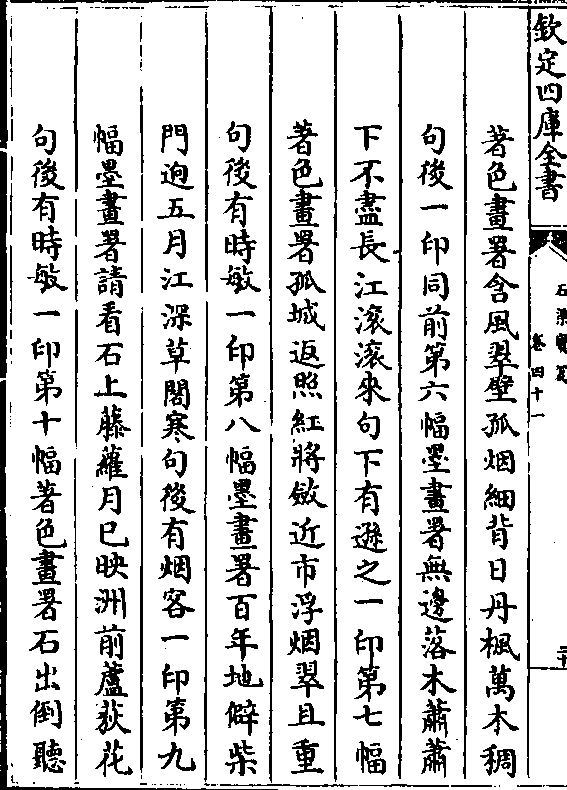 欽定四庫全書
石渠寶笈
卷四十一
著色畫署含風翠壁孤烟細背日丹楓萬木稠
句後一印同前第六幅墨畫署無邊落木蕭蕭
下不盡長江滚滚來句下有遜之一印第七幅
著色畫署孤城返照紅將斂近市浮烟翠且重
句後有時敏一印第八幅墨畫署百年地僻柴
門逈五月江深草閣寒句後有烟客一印第九
幅墨畫署請看石上藤蘿月已映洲前蘆荻花
句後有時敏一印第十幅著色畫署石出倒聽